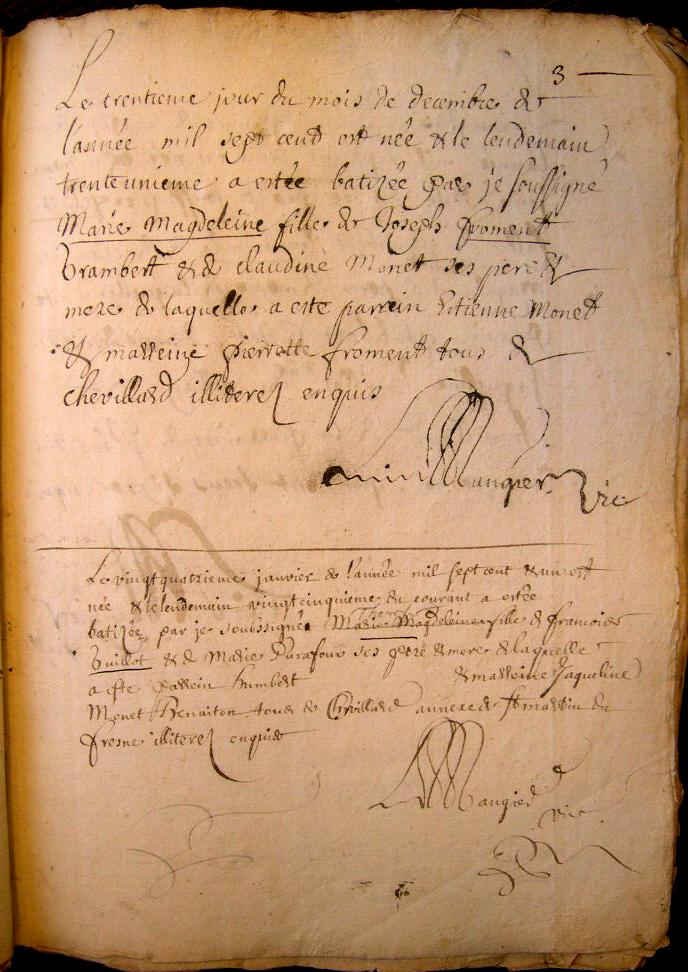 3
Le trentieme jour du mois de decembre de
l'année mil sept cent est née & le lendemain
trenteunieme a estée batizée par je soussigné
Marie Magdeleine fille de Joseph froment
brambert & de claudine Monet ses pere &
mere de laquelle a este parrein Estienne Monet
& marreine pierrette froment tous de
chevillard illiterez enquis
Maugier vic
Le vingtquatrieme janvier de l'année mil sept cent & un est
née & le lendemain vingtcinquieme du courant a estée
batizée par je soubssigné Marie Magdeleine fille de francois
Guillot & de Marie Durafour ses pere & mere de laquelle
a este parrein humbert & marreine Jaqueline
Monet Benaiton tous de Chevillard annexe de St martin du
fresne illiterez enquis
Maugier vic